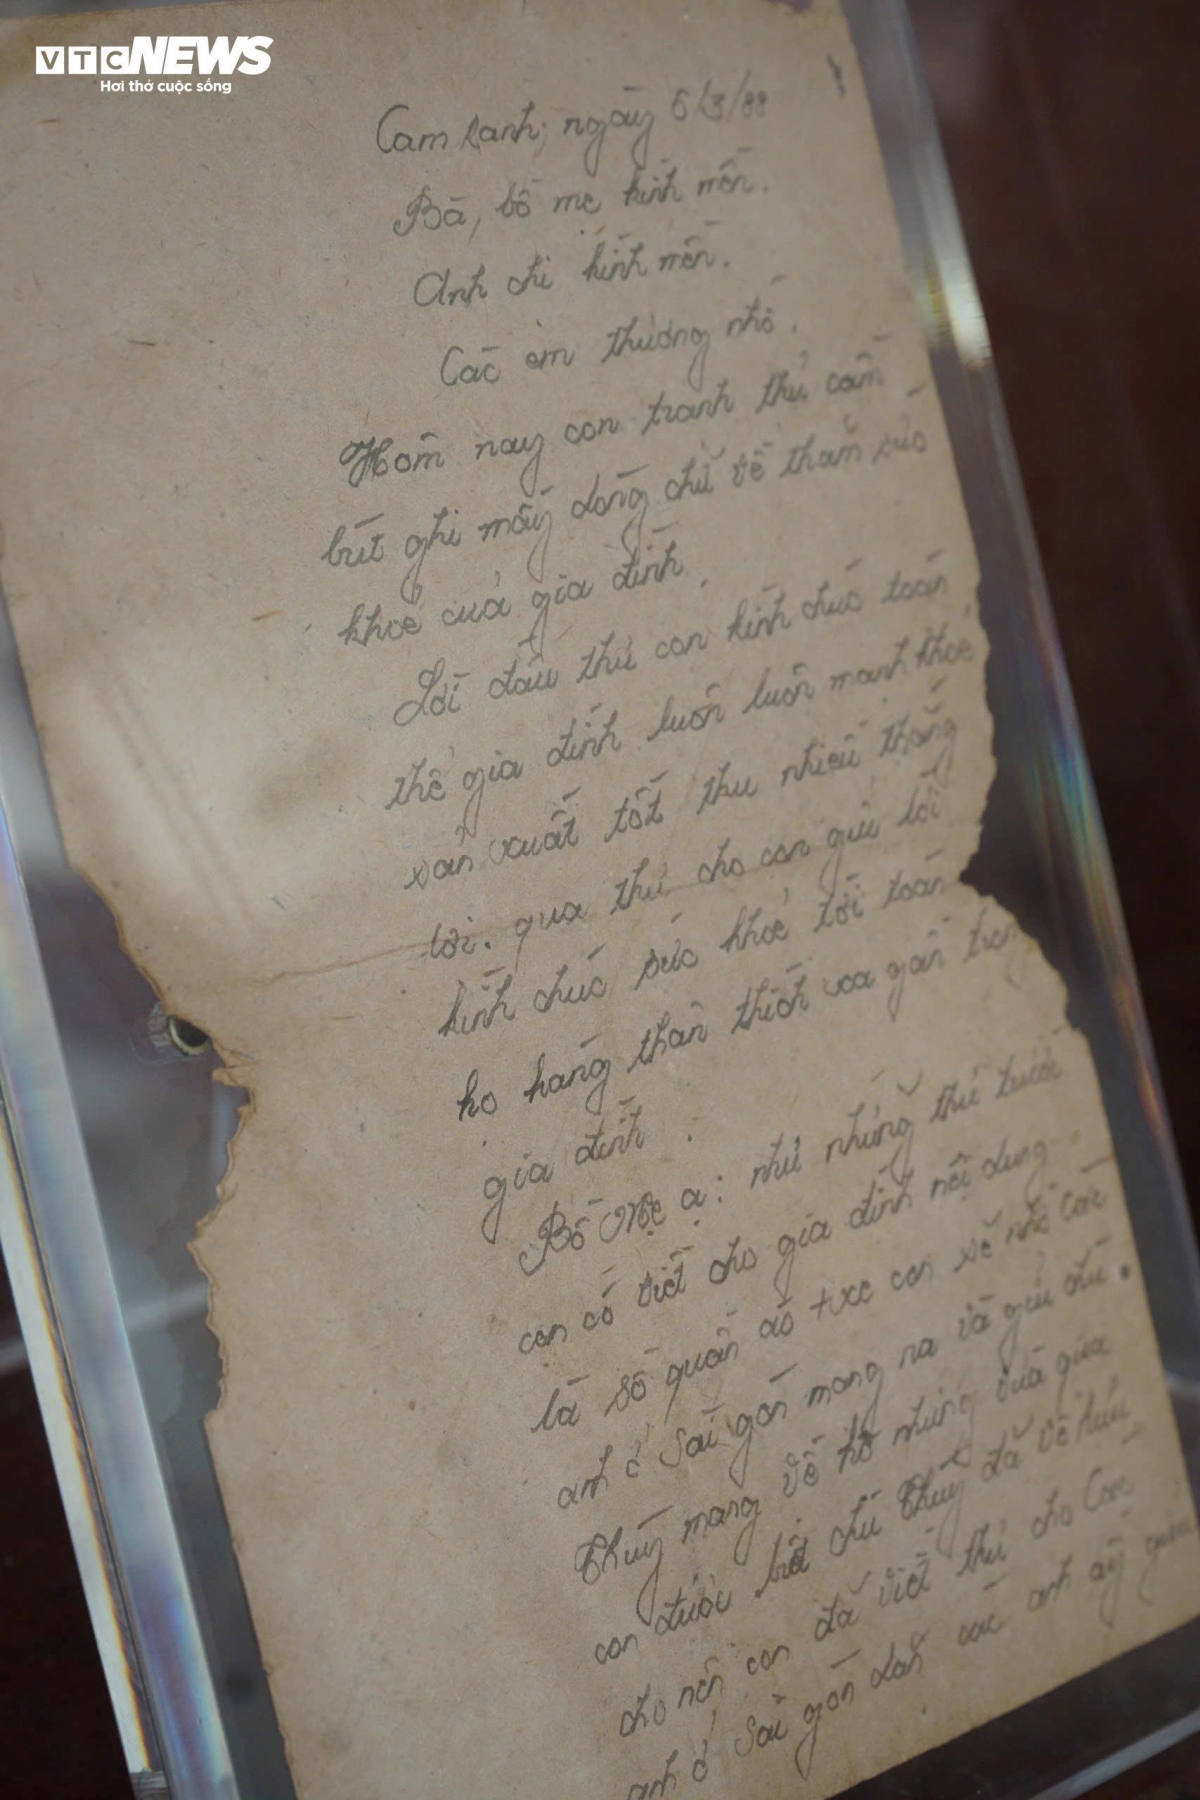 VTC NEWS
Hơi thở cuộc sống
Cam Ranh, ngày 6/3/88
Bà, bố mẹ kính mến.
Anh chị kính mến.
Các em thương nhớ.
Hôm nay con tranh thủ cầm
bút ghi mấy dòng chữ về thăm sức
khoẻ của gia đình.
Lời đầu thư con kính chúc toàn
thể gia đình luôn luôn mạnh khoẻ
sản xuất tốt thu nhiều thắng
lợi. qua thư cho con gửi lời
kính chúc sức khoẻ tới toàn
họ hàng thân thích xa gần trong
gia đình.
Bố Mẹ ạ: như những thư trước
con có viết cho gia đình nội dung
là số quần áo + xe con sẽ nhờ các
anh ở Sài gòn mang ra và gửi chú
Thuý mang về hộ nhưng vừa qua
con được biết chú Thuý đã về hưu
cho nên con đã viết thư cho các
anh ở Sài gòn dặn các anh ấy